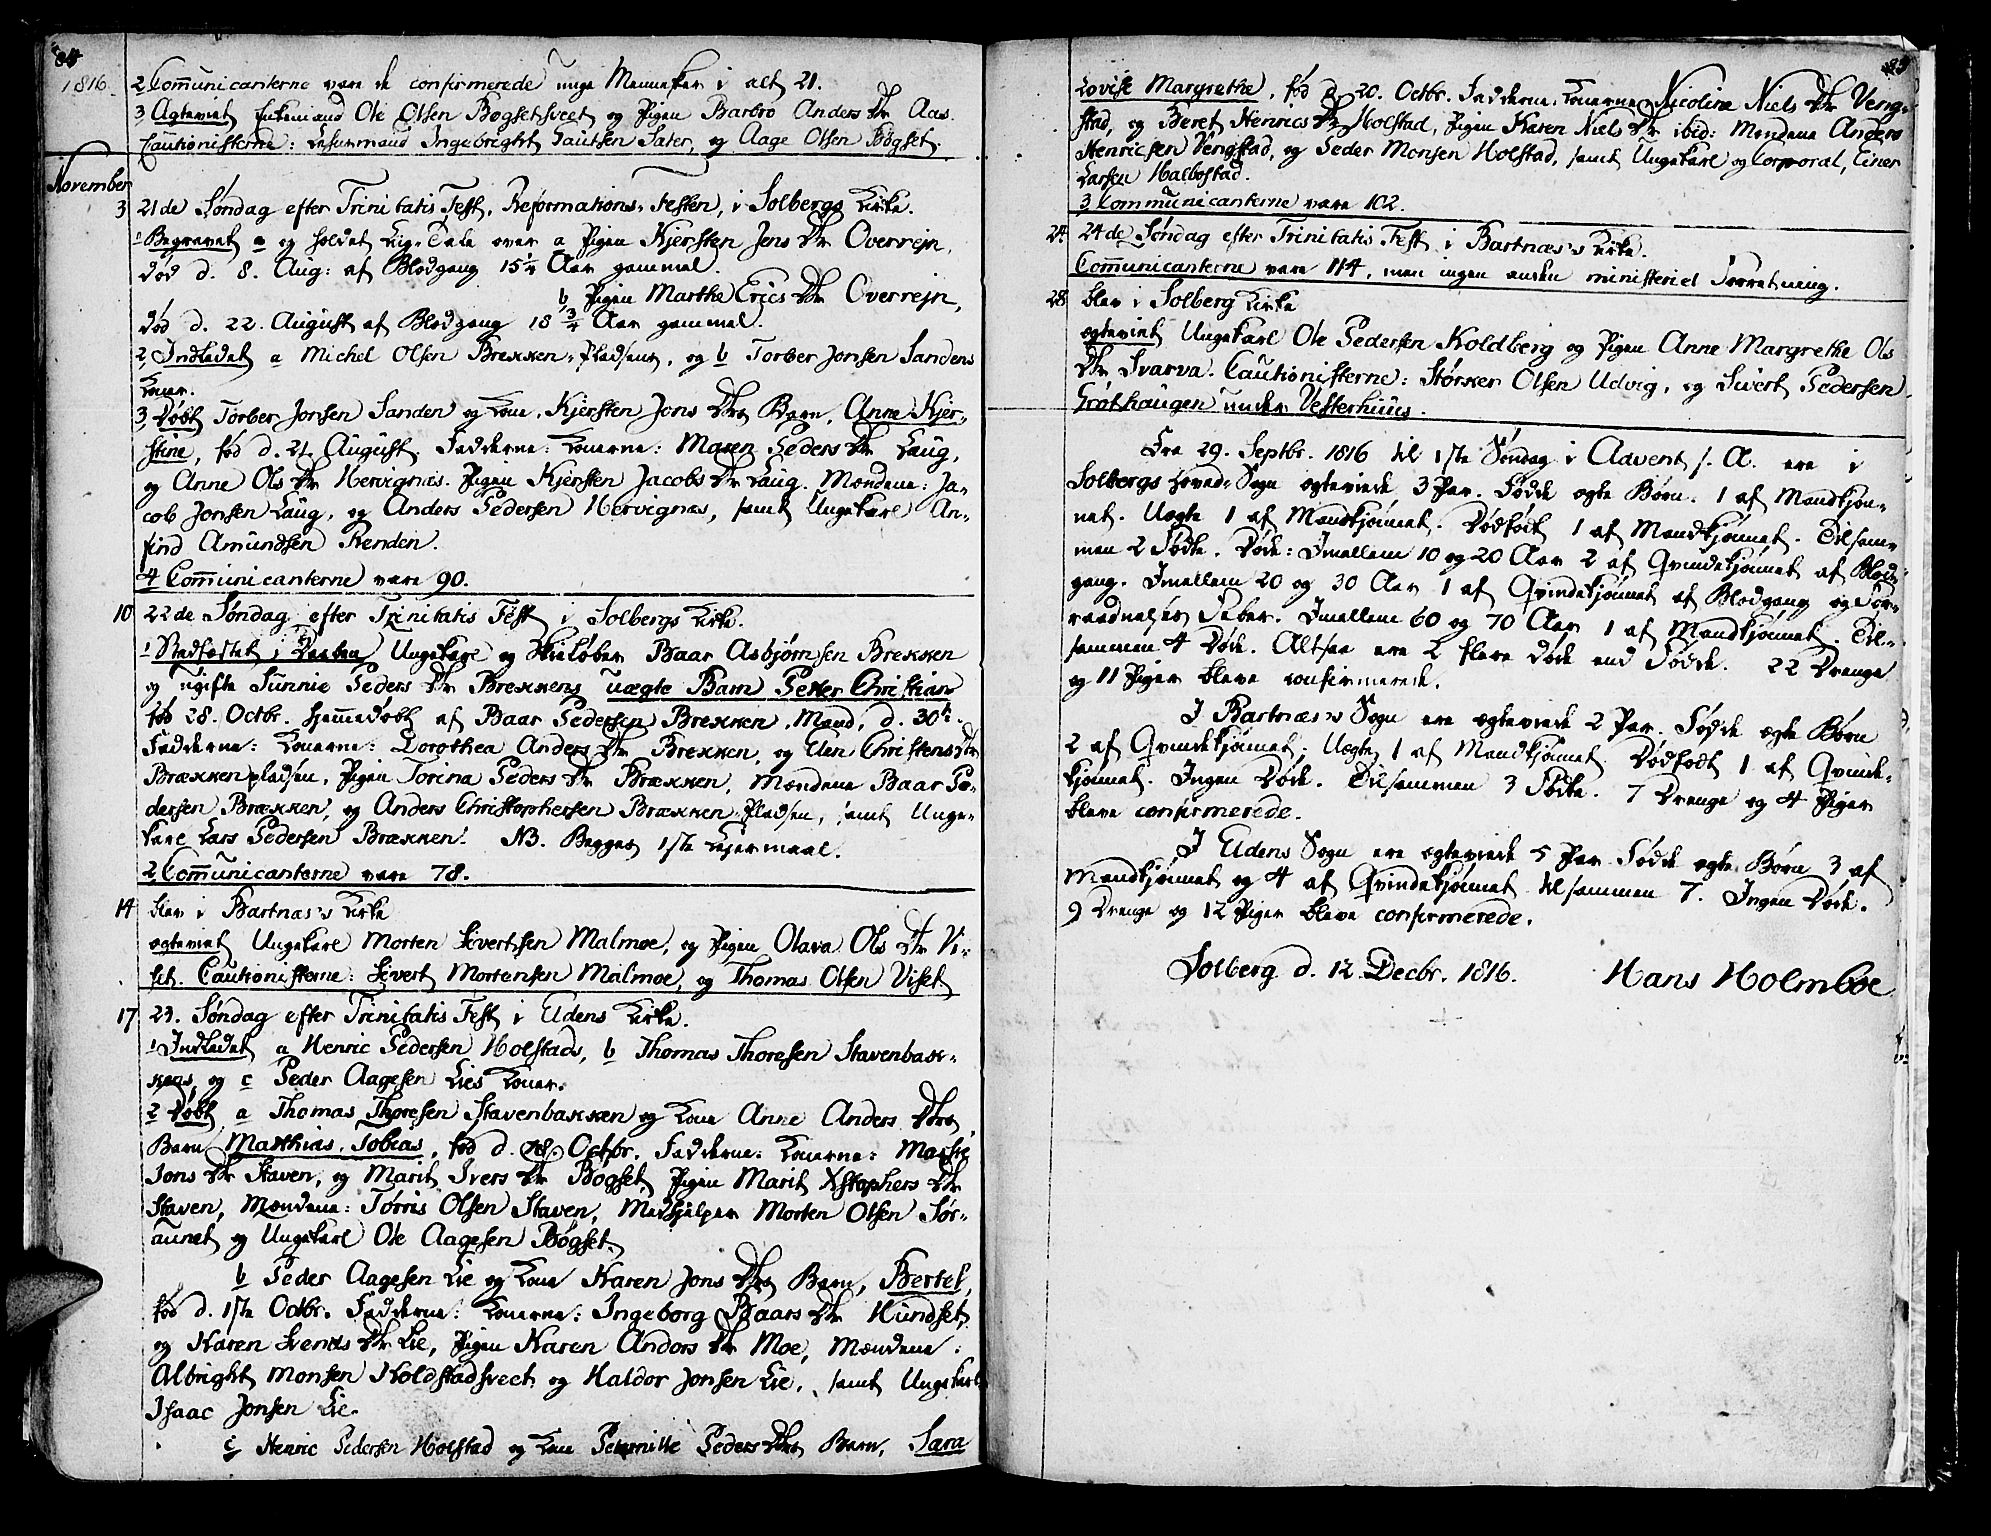 84
1816.
2 Communicanterne vare de confirmerede unge Mennesker i alt 21.
3 Ægteviet Enkemand Ole Olsen Bøgsetsveet og Pigen Barbro Anders Dtr Aas.
Cautionisterne: Lehnsmand Ingebright Gautsen Sater, og Aage Olsen Bøgset.
November
3 21de Søndag efter Trinitatis Fest, Reformations-Festen, i Solbergs Kirke.
1 Begravet og holdet Lig-Tale over a Pigen Kjersten Jens Dtr Overrejn,
død d. 8. Aug: af Blodgang 15¼ Aar gammel.
b Pigen Marthe Erics Dtr Overrejn,
død d. 22. August af Blodgang 18¾ Aar gammel.
2 Indledet a Michel Olsen Brekken-Pladsens, og b Torber Jonsen Sandens
Koner.
3 Døbt Torber Jonsen Sanden og Kone Kjersten Jons Dtrs Barn, Anne Kjer-
stine, fød d. 21. August. Fadderne: Konerne: Maren Peders Dtr Laug,
og Anne Ols Dtr Hervignæs. Pigen Kjersten Jacobs Dtr Laug. Mændene: Ja-
cob Jonsen Laug, og Anders Pedersen Hervignæs, samt Ungekarl An-
find Amundsen Renden.
4 Communicanterne vare 90.
10 22de Søndag efter Trinitatis Fest i Solbergs Kirke.
1 Stadfæstet i Daaben Ungekarl og Skieløber Baar Asbjørnsen Brekken
og ugifte Sunnie Peders Dtr Brekkens uægte Barn Petter Christian
fød 28. Octbr. hjemmedøbt af Baar Pedersen Brekken, Mand, d. 30te.
Fadderne: Konerne: Dorothea Anders Dtr Brekken, og Elen Christens Dtr
Brækkenpladsen, Pigen Torina Peders Dtr Brækken, Mændene Baar Pe-
dersen Brækken, og Anders Christophersen Brækken-Pladsen, samt Unge-
karl Lars Pedersen Brækken. NB. Begges 1ste Lejermaal.
2 Communicanterne vare 78.
14 blev i Bartnæs's Kirke
ægteviet Ungekarl Morten Sivertsen Malmoe, og Pigen Olava Ols Dtr Vi-
set. Cautionisterne: Sivert Mortensen Malmoe, og Thomas Olsen Viset
17 23. Søndag efter Trinitatis Fest i Eldens Kirke.
1 Indledet a Henric Pedersen Holstads, b Thomas Thoresen Stavenbak-
kens, og c Peder Aagesen Lies Koner.
2 Døbt a Thomas Thoresen Stavenbakken og Kone Anne Anders Dtrs
Barn Matthias Tobias, fød d. 18. Octbr. Fadderne: Konerne:
Jons Dtr Staven, og Marit Ivers Dtr Bøgset, Pigen Marit Xstophers Dtr
Staven, Mændene: Tørris Olsen Staven, Medhjelper Morten Olsen Sør-
aunet og Ungekarl Ole Aagesen Bøgset.
b Peder Aagesen Lie og Kone Karen Jons Dtrs Barn, Bertel,
fød d. 1ste Octbr. Fadderne: Konerne: Ingeborg Baars Dtr Hundset,
og Karen Svends Dtr Lie, Pigen Karen Anders Dtr Moe, Mændene:
Albright Monsen Holdstadsveet og Haldor Jonsen Lie, samt Ungekarl
Isaac Jonsen Lie.
c Henric Pedersen Holstad og Kone Pernille Peders Dtrs Barn, Sara
Lovise Margrethe, fød d. 20. Octbr. Fadderne. Konerne Nicolina Niels Dtr Veng-
stad, og Beret Henrics Dtr Holstad, Pigen Karen Niels Dtr ibid: Mændene Anders
Henricsen Vengstad, og Peder Monsen Holstad, samt Ungekarl og Corporal, Einer
Larsen Halbostad.
3 Communicanterne vare 102.
24. 24de Søndag efter Trinitatis Fest i Bartnæs's Kirke.
Communicanterne vare 114, men ingen anden ministeriel Forretning.
28 blev i Solberg Kirke
ægteviet Ungekarl Ole Pedersen Koldberg og Pigen Anne Margrethe Ols
Dtr Svarva. Cautionisterne: Størker Olsen Udvig, og Sivert Pedersen
Grøthaugen under Vesterhuus.
Fra 29. Septbr. 1816 til 1ste Søndag i Advent s. A. ere i
Solbergs Hoved-Sogn ægteviede 3 Par. Fødde ægte Børn. 1 af Mandkjøn-
net. Uægte 1 af Mandkjønnet. Dødfødt 1 af Mandkjønnet. Tilsam-
men 2 Fødte. Døde: Imellem 10 og 20 Aar 2 af Qvindekjønnet af Blod-
gang. Imellem 20 og 30 Aar 1 af Qvindekjønnet af Blodgang og For-
raadnelses Feber. Imellem 60 og 70 Aar 1 af Mandkjønnet. Til-
sammen 4 Døde. Altsaa ere 2 flere døde end Fødde. 22 Drenge
og 11 Piger bleve confirmerede.
I Bartnæs's Sogn ere ægteviede 2 Par. Fødde ægte Børn
2 af Qvindekjønnet. Uægte 1 af Mandkjønnet. Dødfødt 1 af Qvinde-
kjønnet. Ingen Døde. Tilsammen 3 Fødte. 7 Drenge og 4 Piger
bleve confirmerede.
I Eldens Sogn ere ægteviede 5 Par. Fødde ægte Børn 3 af
Mandkjønnet og 4 af Qvindekjønnet tilsammen 7. Ingen Døde.
9 Drenge og 12 Piger bleve confirmerede.
Solberg d. 12. Decbr. 1816. Hans Holmboe